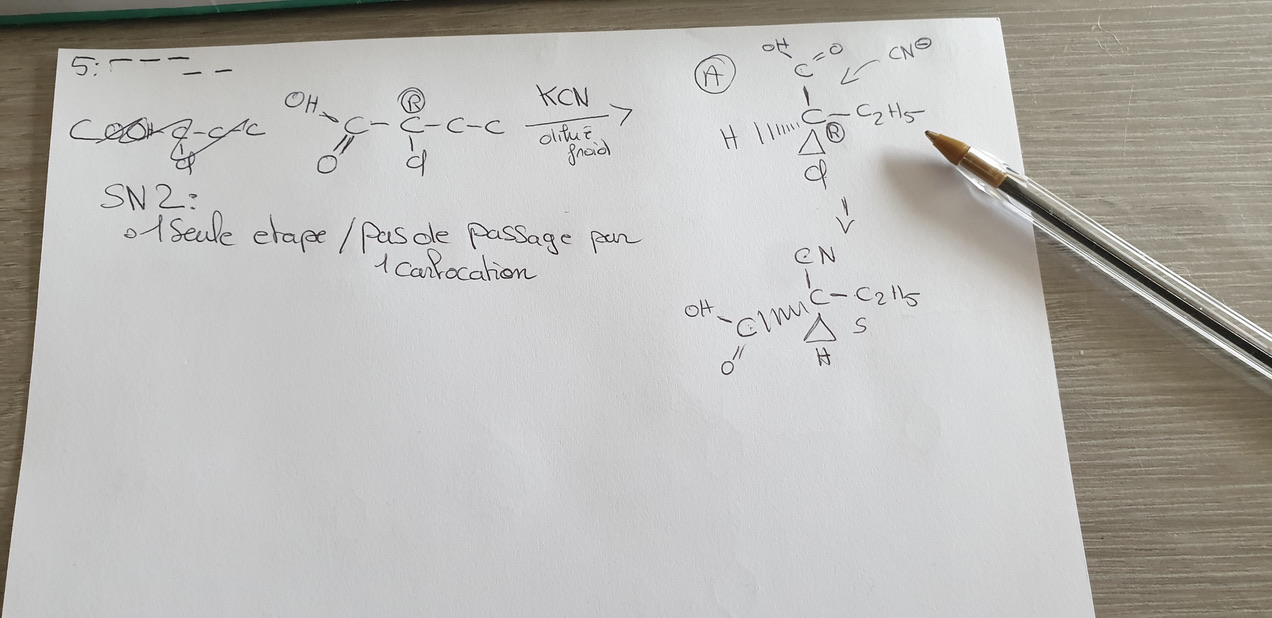 5:
COOH C-C-C
Cl
OH
C - C - C - C
R
O
Cl
KCN
dilué
froid
SN2:
1 Seule etape / pas de passage par
1 Carbocation
A
OH
C = O
CN⊖
C - C2H5
H
R
Cl
CN
C - C2H5
OH
C
S
O
H